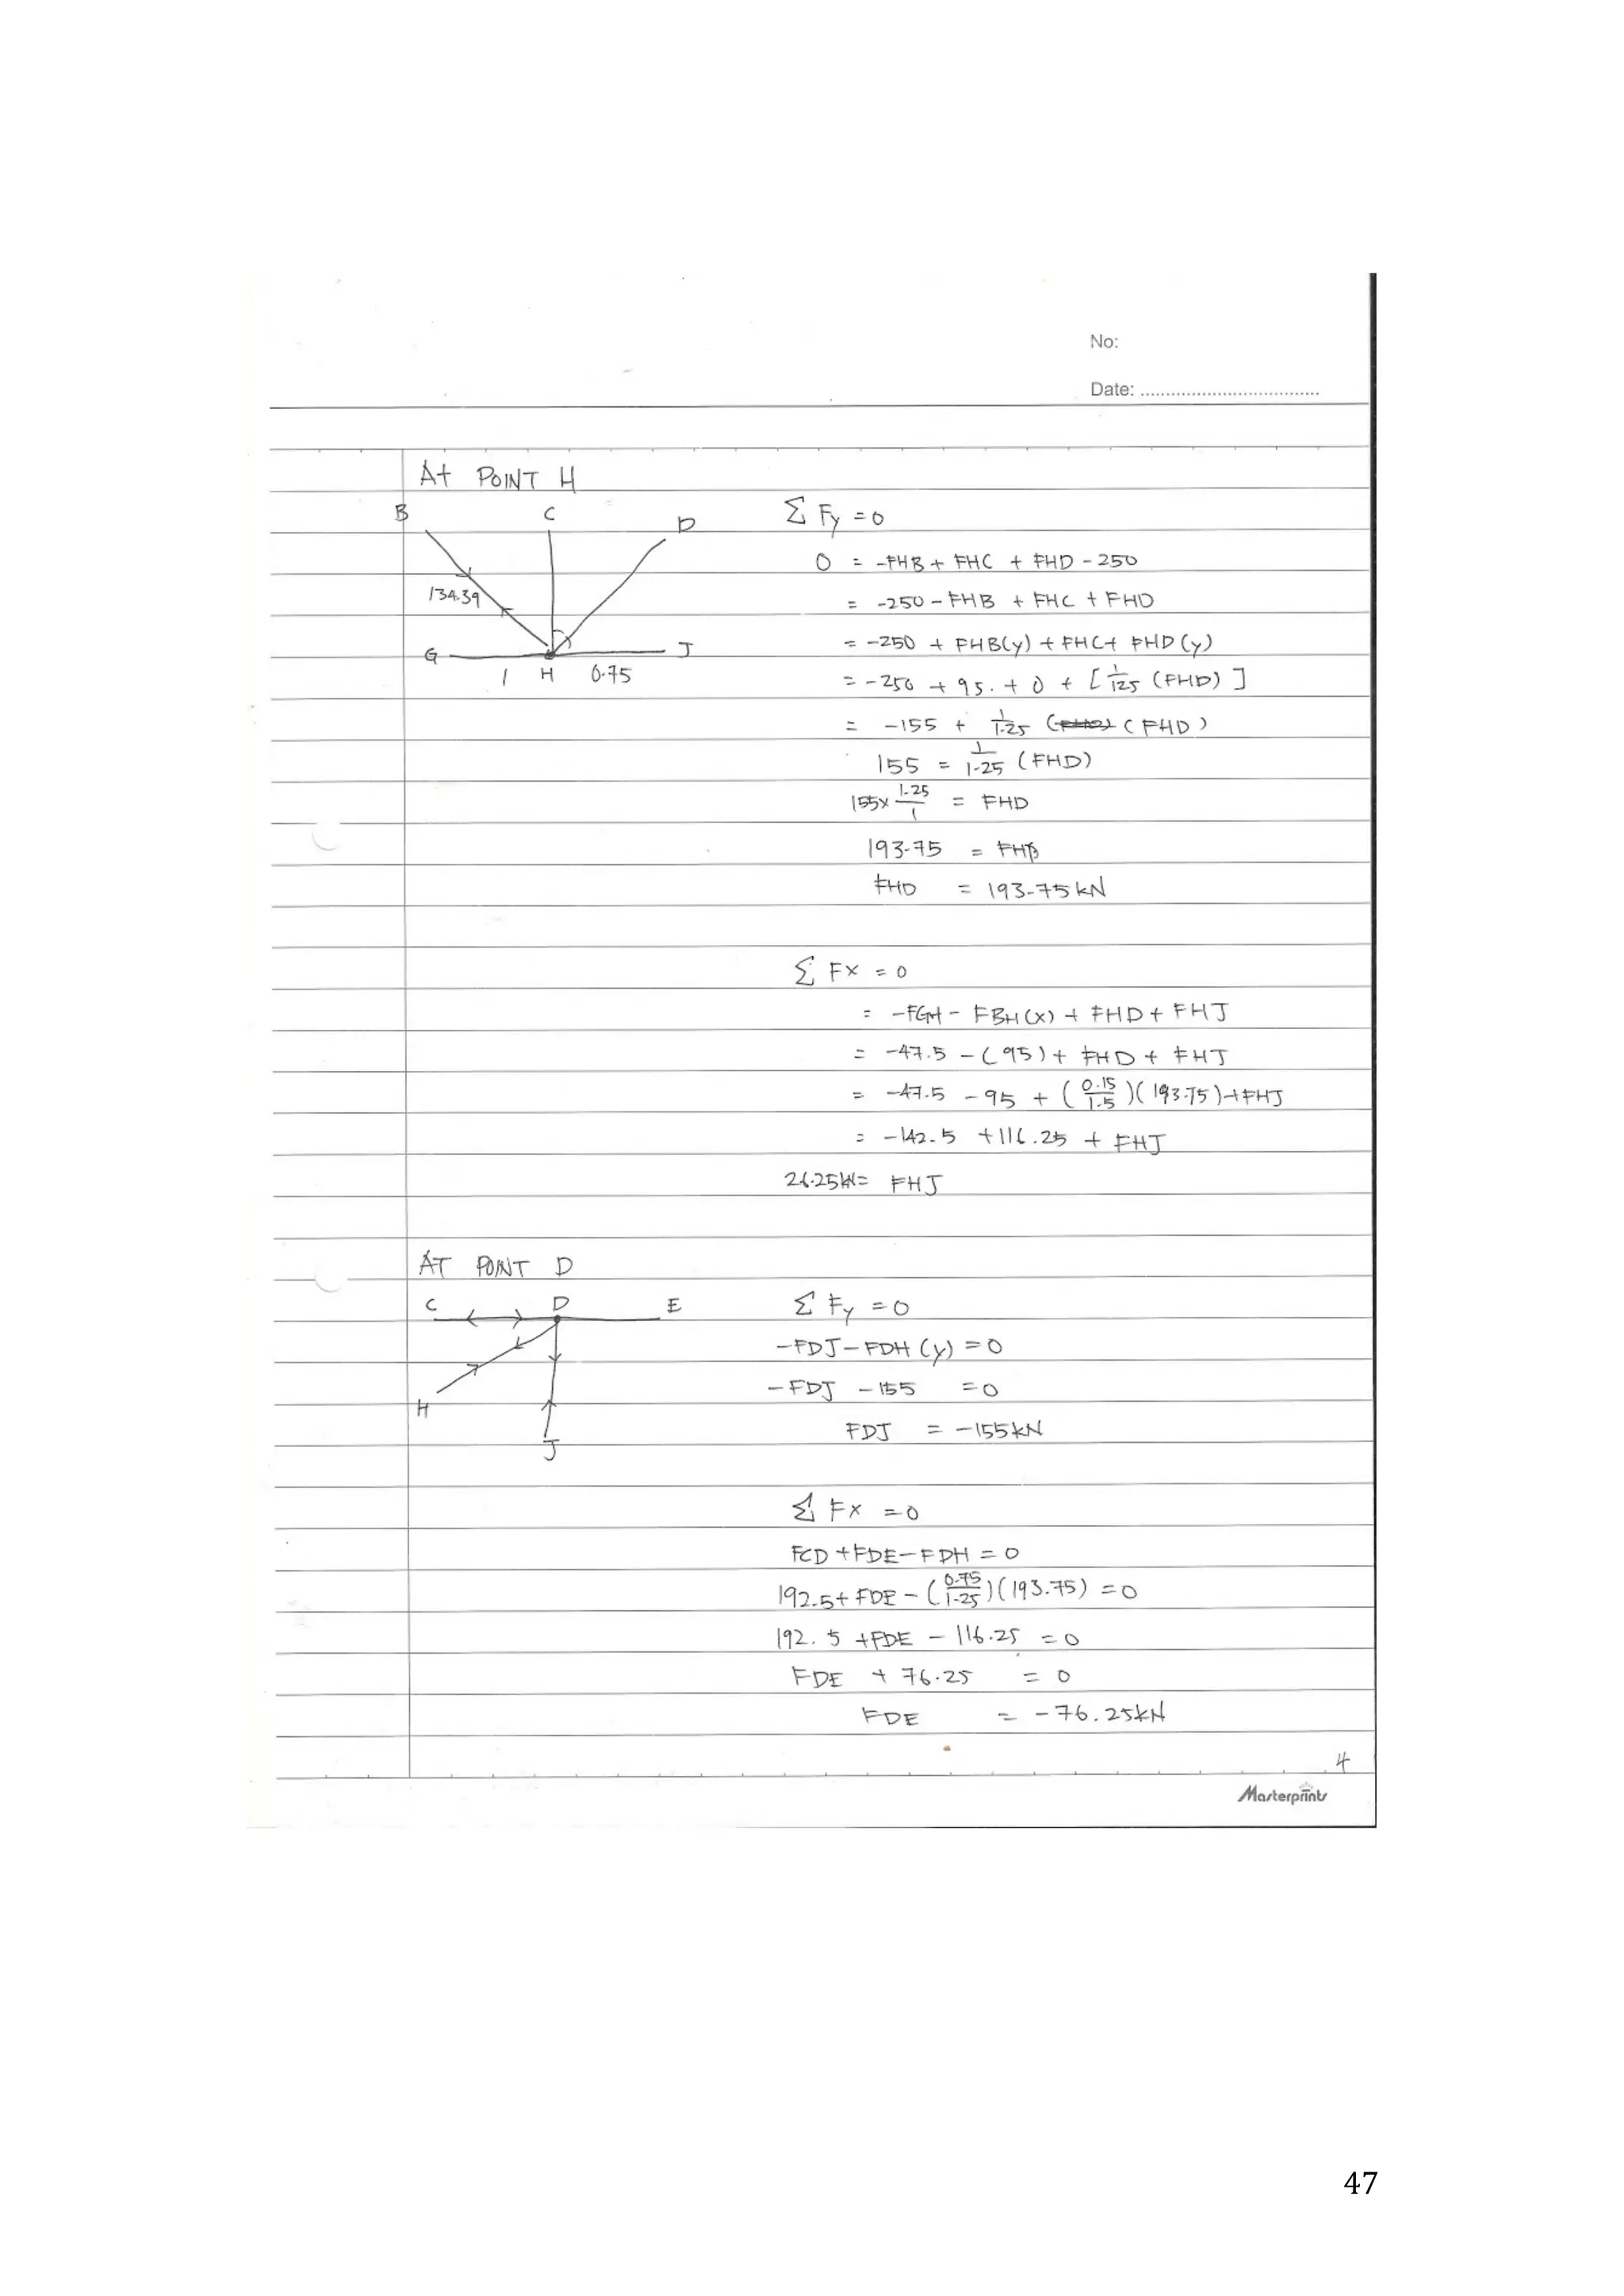 No:
Date: ..................................
At POINT H
B C D
134.39
G J
1 H 0.75
Σ Fy = 0
0 = -FHB + FHC + FHD - 250
= -250 - FHB + FHC + FHD
= -250 + FHB(y) + FHC + FHD (y)
= -250 + 95. + 0 + [ 1/1.25 (FHD) ]
= -155 + 1/1.25 (FHD)
155 = 1/1.25 (FHD)
155x 1.25/1 = FHD
193.75 = FHD
FHD = 193.75 kN
Σ Fx = 0
= -FGH - FBH(x) + FHD + FHJ
= -47.5 - (95) + FHD + FHJ
= -47.5 - 95 + (0.75/1.5)(193.75) + FHJ
= -142.5 + 116.25 + FHJ
26.25kN = FHJ
AT POINT D
C D E
H
J
Σ Fy = 0
-FDJ - FDH (y) = 0
-FDJ - 155 = 0
FDJ = -155kN
Σ Fx = 0
FCD + FDE - FDH = 0
192.5 + FDE - (0.75/1.25)(193.75) = 0
192.5 + FDE - 116.25 = 0
FDE + 76.25 = 0
FDE = -76.25kN
4
Masterprints
47